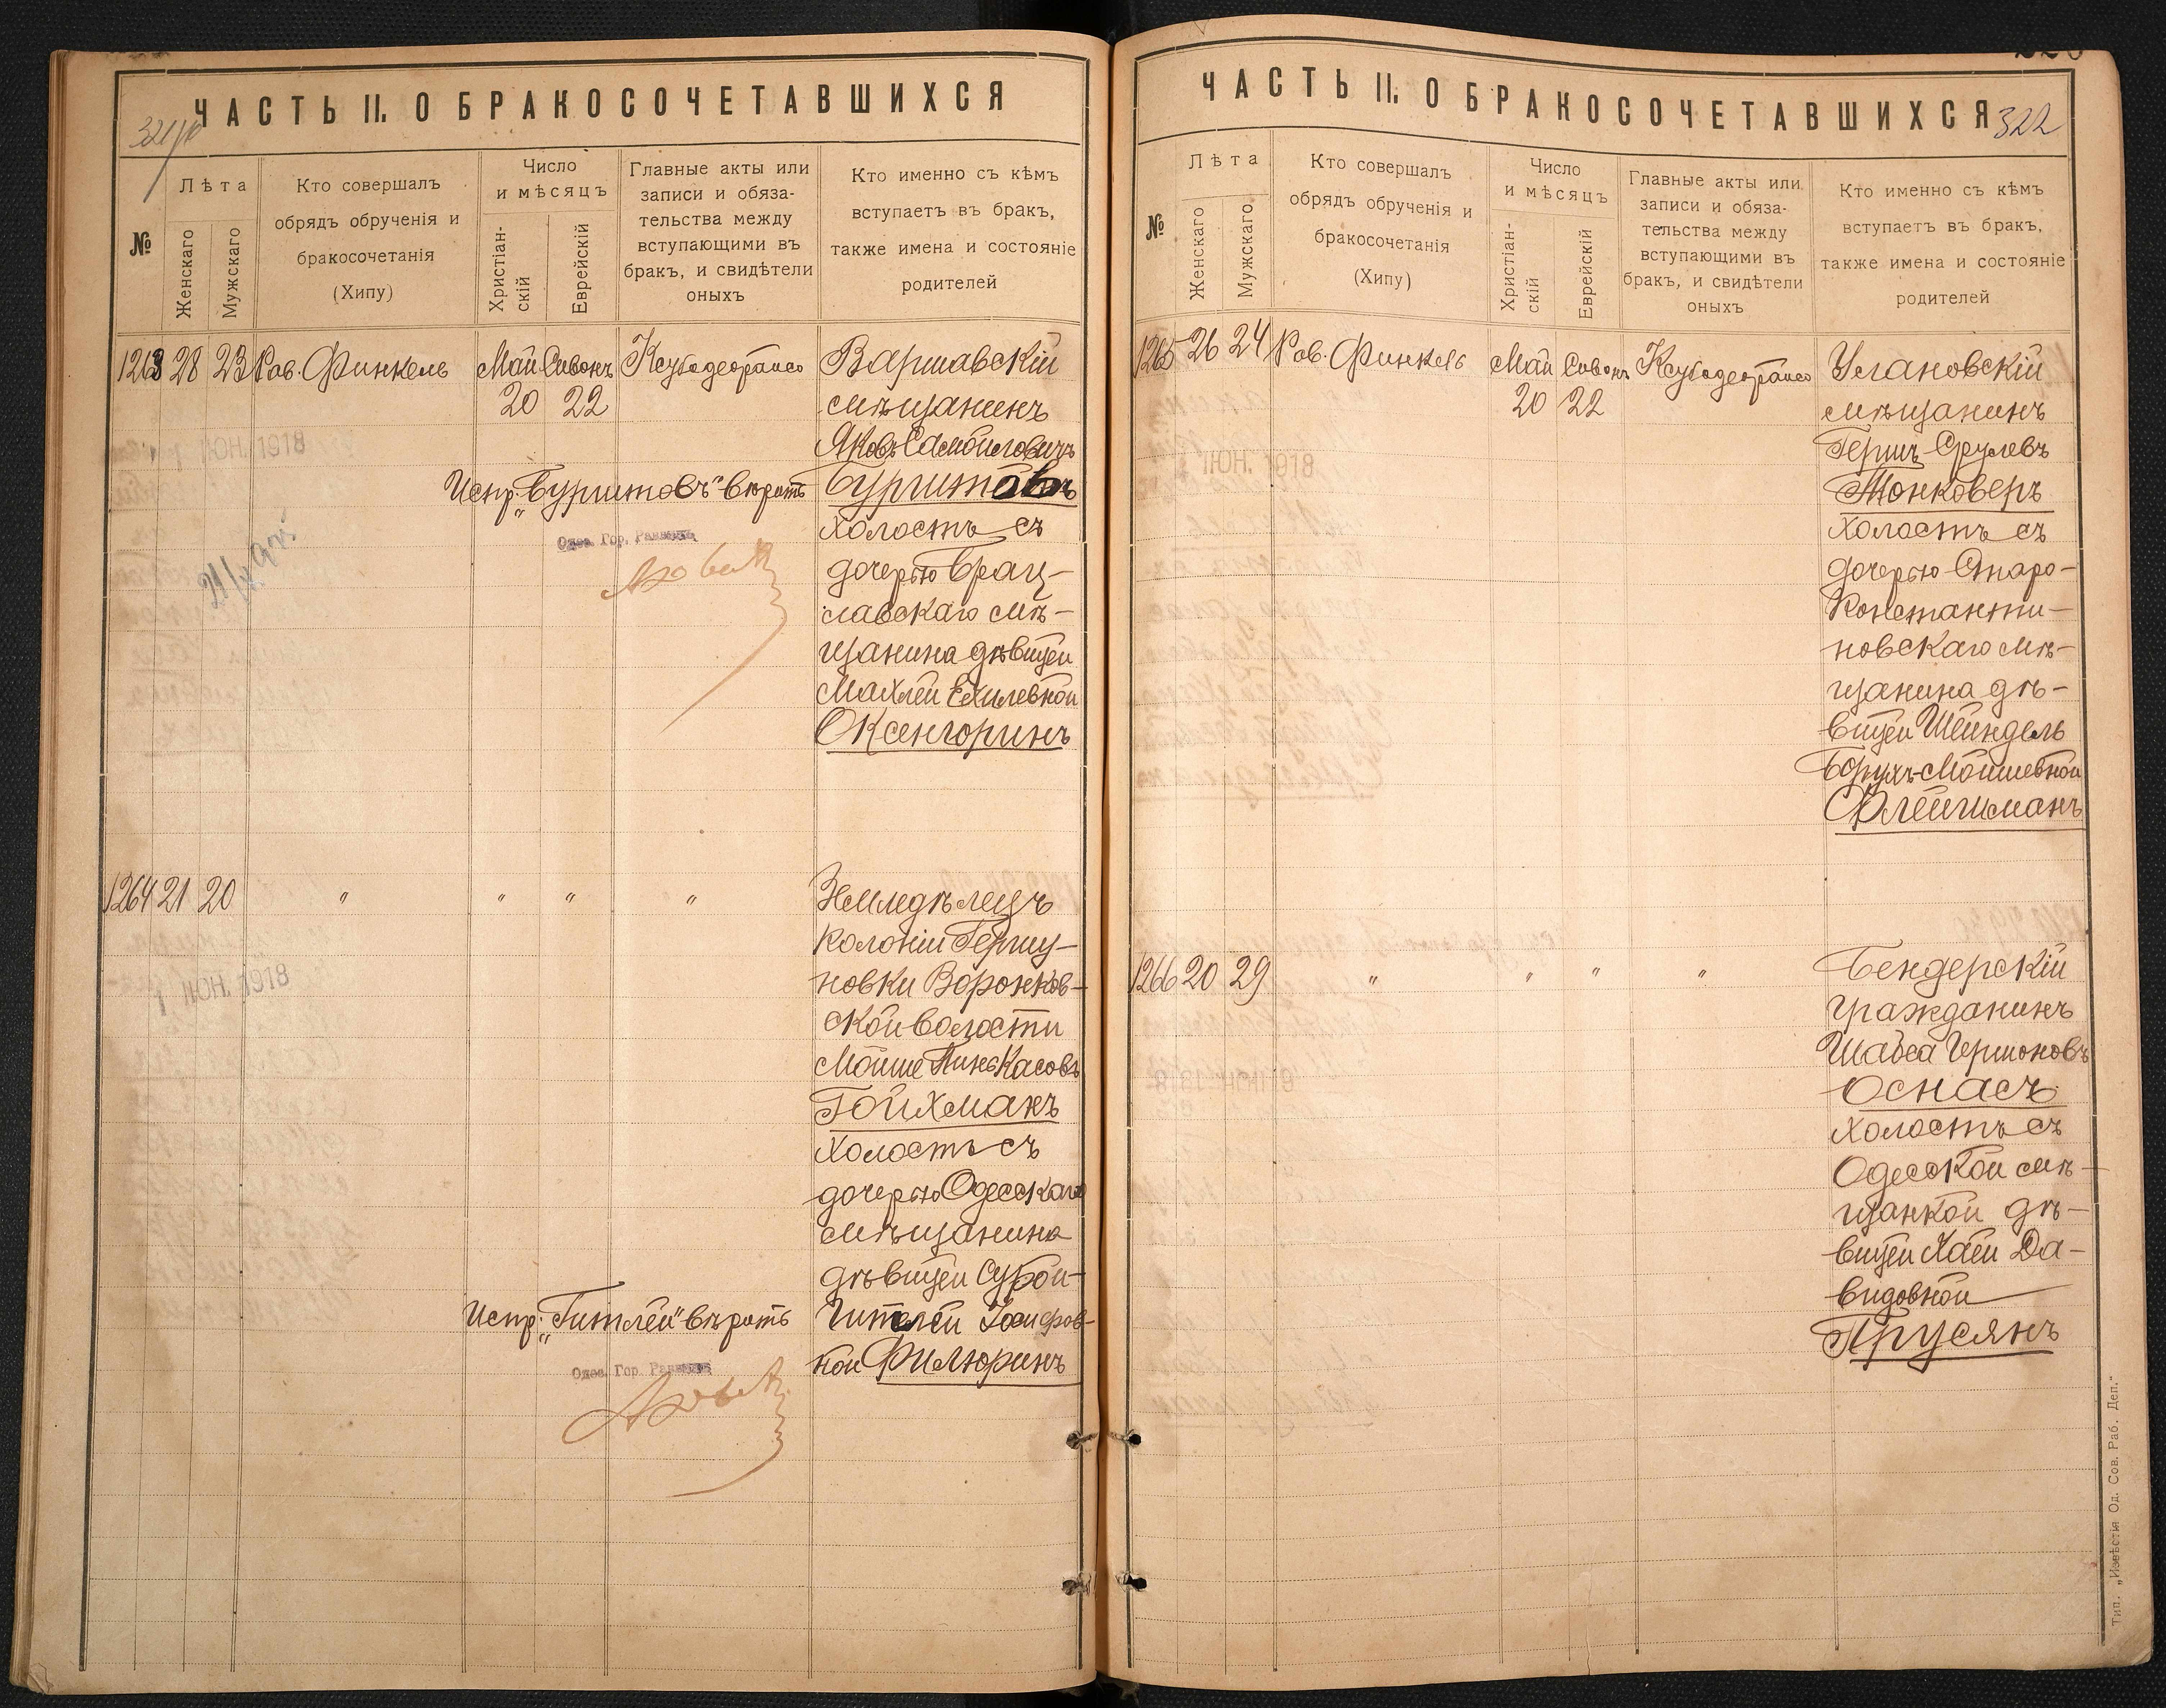 ЧАСТЬ II. О БРАКОСОЧЕТАВШИХСЯ
№
Лѣта
Женскаго
Мужскаго
Кто совершалъ
обрядъ обрученія и
бракосочетанія
(Хипу)
Число
и мѣсяцъ
Христіан-
скій
Еврейскій
Главные акты или
записи и обяза-
тельства между
вступающими въ
бракъ, и свидѣтели
оныхъ
Кто именно съ кѣмъ
вступаетъ въ бракъ,
также имена и состояніе
родителей
1263 28 23 Рав. Финкель Май Сивонъ Варшавскій
20 22 мѣщанинъ
Яковъ Самойловичъ
1 ІЮН. 1918
Испр: „Бургитовъ" вѣрить Бургитовъ
Одес. Гор. Раввинъ
холостъ съ
дочерью Брац-
лавскаго мѣ-
щанина дѣвицей
Махлей Ехилевной
Оксенгоринъ
1264 21 20 " " " " Земледѣлецъ
колоніи Гершу-
новки Воронков-
ской волости
1 ІЮН. 1918
Мойше Пинкасовъ
Гойхманъ
холостъ съ
дочерью Одесскаго
мѣщанина
дѣвицей Сурой-
Испр: „Гитлей" вѣрить Гитлей Іосифов-
ной Филюринъ
Одес. Гор. Раввинъ
ЧАСТЬ II. О БРАКОСОЧЕТАВШИХСЯ
322
№
Лѣта
Женскаго
Мужскаго
Кто совершалъ
обрядъ обрученія и
бракосочетанія
(Хипу)
Число
и мѣсяцъ
Христіан-
скій
Еврейскій
Главные акты или
записи и обяза-
тельства между
вступающими въ
бракъ, и свидѣтели
оныхъ
Кто именно съ кѣмъ
вступаетъ въ бракъ,
также имена и состояніе
родителей
1265 26 24 Рав. Финкель Май Сивонъ Улановскій
20 22 мѣщанинъ
Гершъ Срулевъ
ІЮН. 1918
Тонковеръ
холостъ съ
дочерью Старо-
константи-
новскаго мѣ-
щанина дѣ-
вицей Шейндель
Борухъ-Мойшевной
Флейшманъ
1266 20 29 " " " " Бендерскій
гражданинъ
Шабса Гершоновъ
Оснасъ
холостъ съ
Одесской мѣ-
щанкой дѣ-
вицей Хаей Да-
видовной
Прусянъ
Тип. „Извѣстія Од. Сов. Раб. Деп."